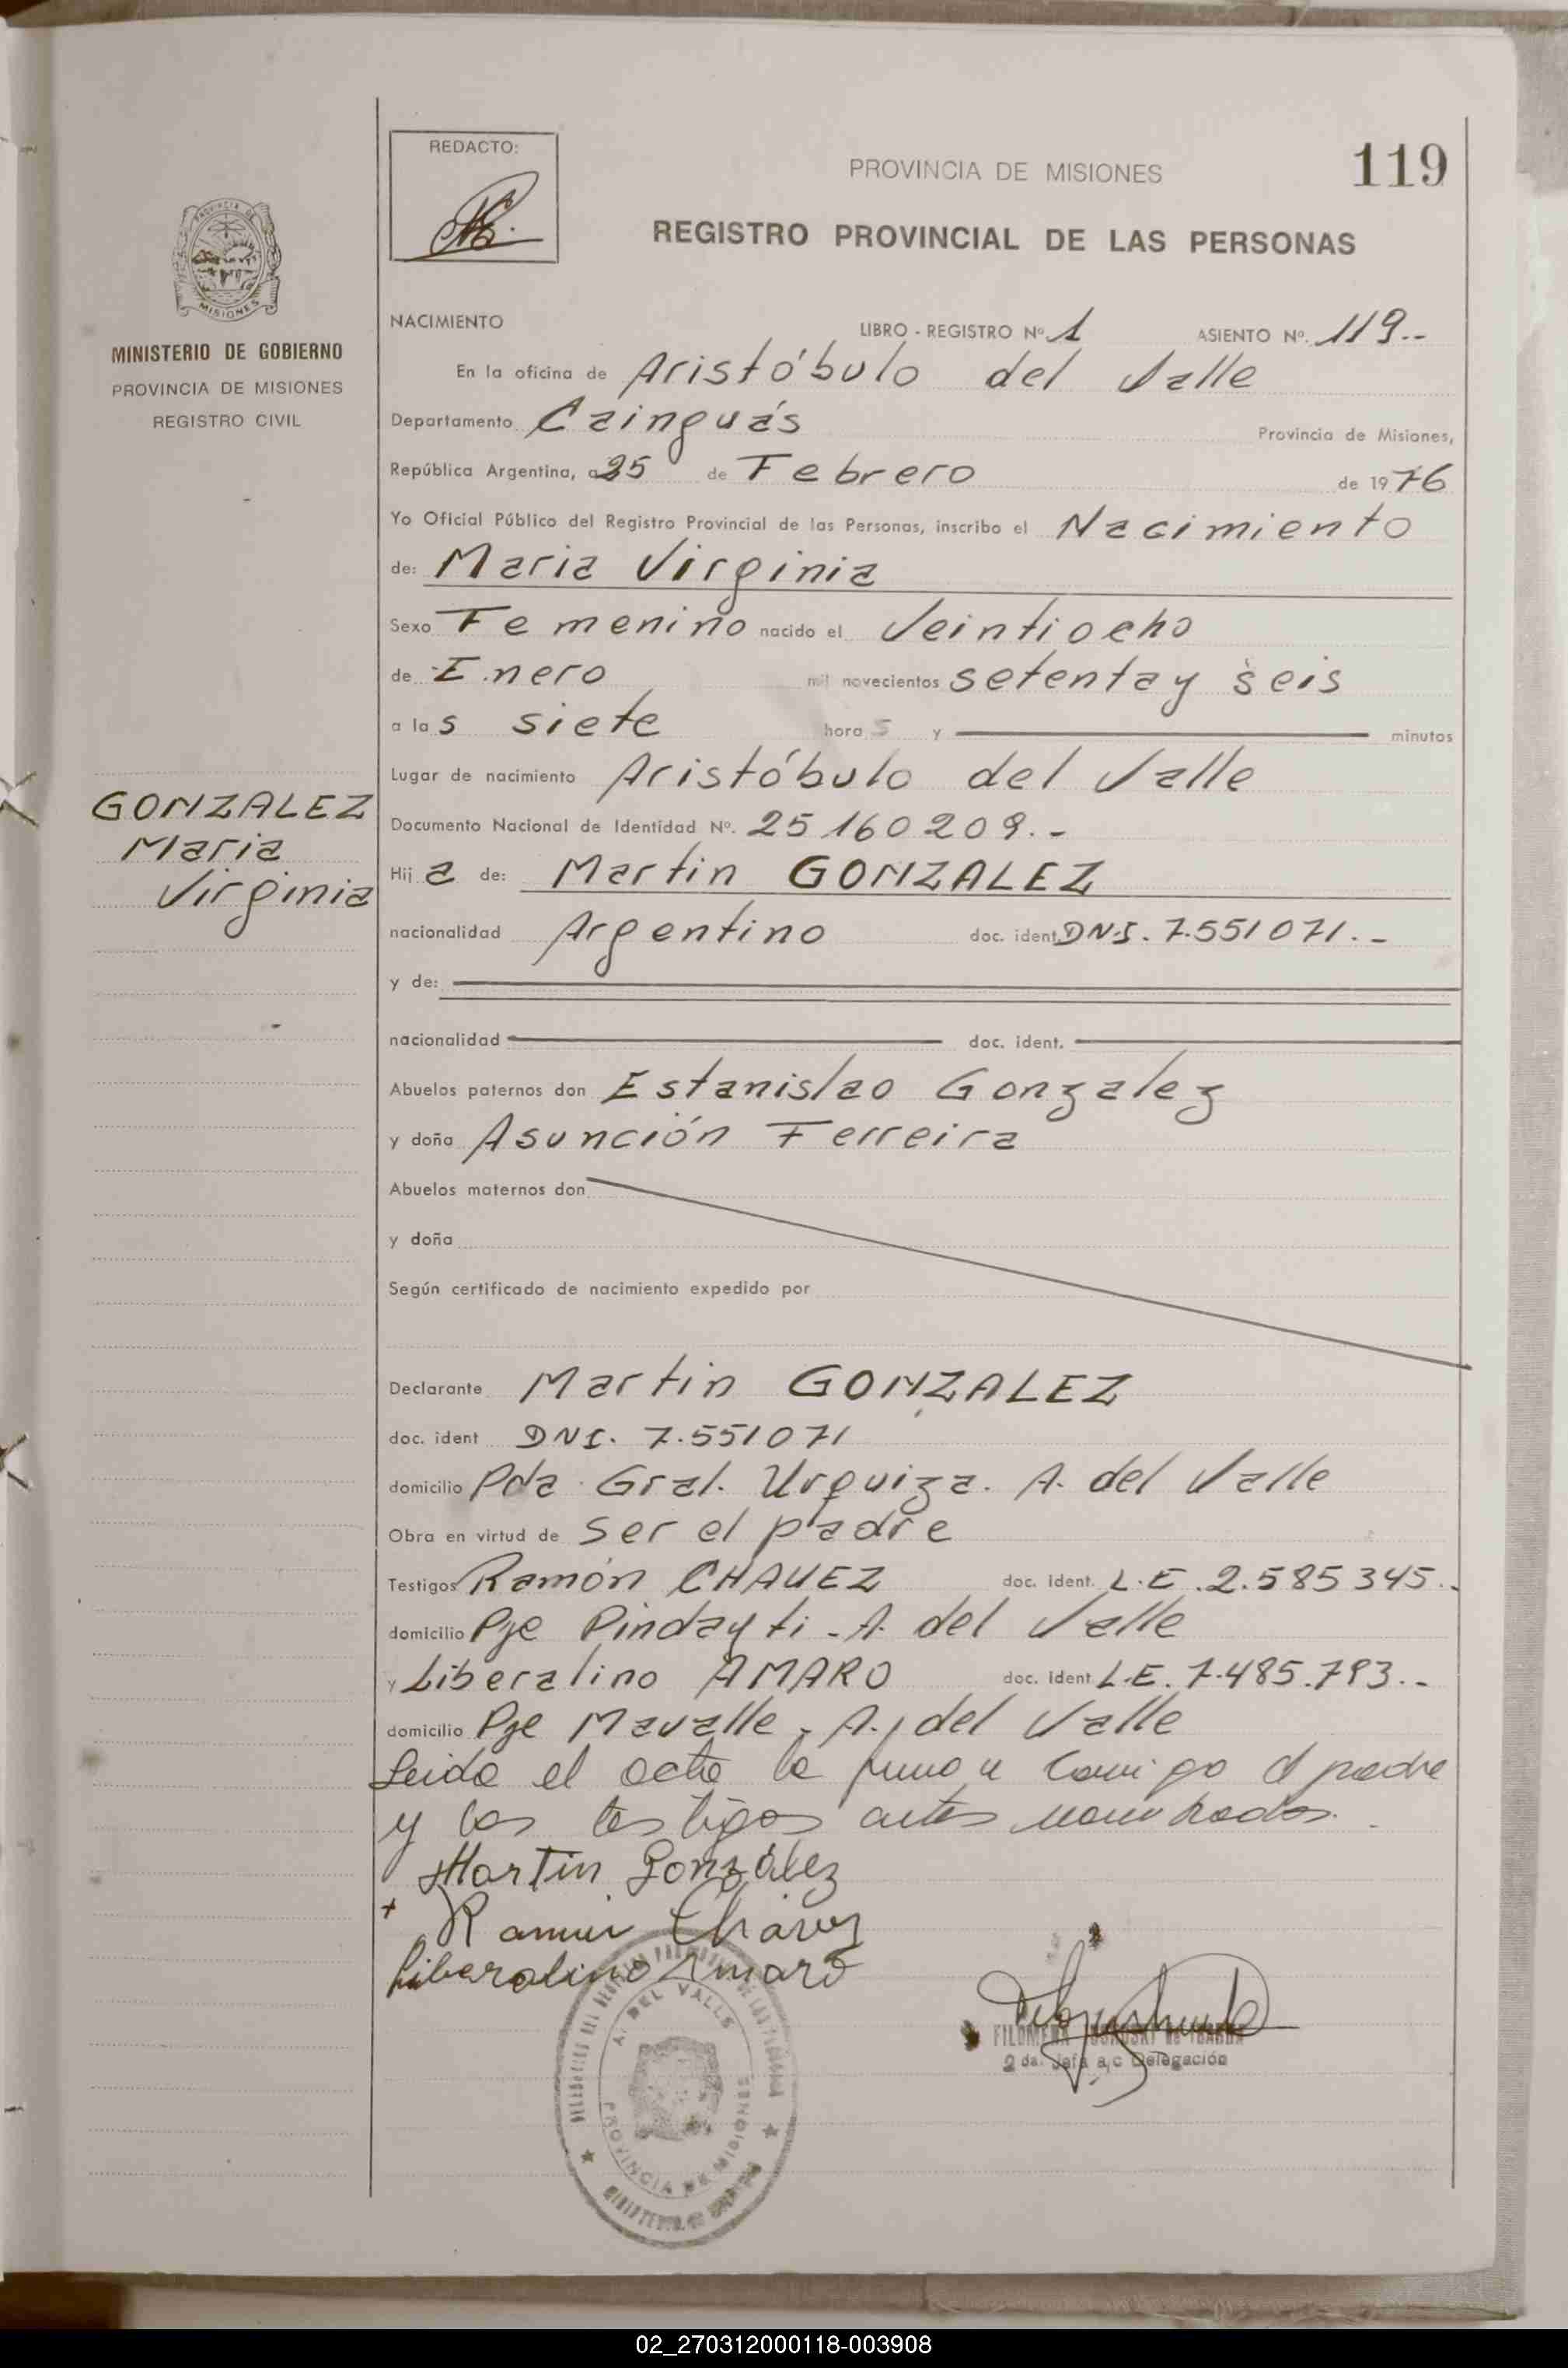 119
REDACTO:
PROVINCIA DE MISIONES
REGISTRO PROVINCIAL DE LAS PERSONAS
PROVINCIA DE
MISIONES
MINISTERIO DE GOBIERNO
PROVINCIA DE MISIONES
REGISTRO CIVIL
NACIMIENTO LIBRO - REGISTRO Nº 1 ASIENTO Nº. 119.-
En la oficina de Aristóbulo del Valle
Departamento Cainguás Provincia de Misiones,
República Argentina, a 25 de Febrero de 1976
Yo Oficial Público del Registro Provincial de las Personas, inscribo el Nacimiento
de: Maria Virginia
Sexo Femenino nacido el Veintiocho
de Enero mil novecientos setenta y seis
a las siete horas y minutos
Lugar de nacimiento Aristóbulo del Valle
GONZALEZ
Maria
Virginia
Documento Nacional de Identidad Nº. 25160209.-
Hija de: Martin GONZALEZ
nacionalidad Argentino doc. ident. DNI. 7.551071.-
y de:
nacionalidad doc. ident.
Abuelos paternos don Estanislao Gonzalez
y doña Asunción Ferreira
Abuelos maternos don
y doña
Según certificado de nacimiento expedido por
Declarante Martin GONZALEZ
doc. ident DNI. 7.551071
domicilio Pda. Gral. Urquiza. A. del Valle
Obra en virtud de ser el padre
Testigos Ramón CHAVEZ doc. ident. L.E. 2.585345.-
domicilio Pje Pindayti - A. del Valle
y Liberalino AMARO doc. ident L.E. 7.485.793.-
domicilio Pje Mavalle - A. del Valle
Leida el acta la firman conmigo el padre
y los testigos antes nombrados.
Martin González
+ Ramon Chavez
Liberalino Amaro
A. DEL VALLE
PROVINCIA DE MISIONES
FILOMENA DE
2 da. Jefa a/c Delegación
02_270312000118-003908